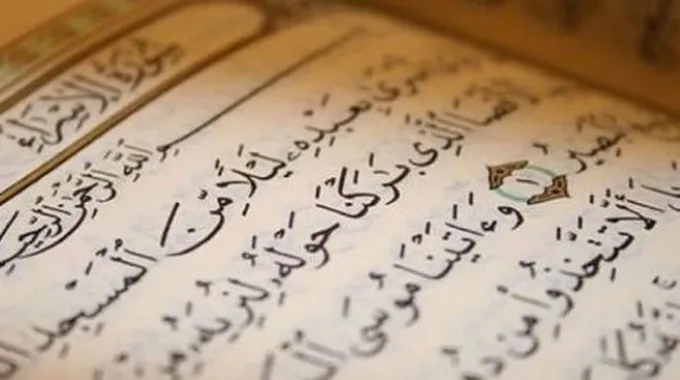 سُورَةُ الْإِسْرَاءِ
بِسْمِ اللَّهِ الرَّحْمَٰنِ الرَّحِيمِ
أَسْرَىٰ بِعَبْدِهِ لَيْلًا مِّنَ الْمَسْجِدِ
الْأَقْصَا الَّذِي بَارَكْنَا حَوْلَهُ لِنُرِيَهُ مِنْ
الْبَصِيرُ ١ وَءَاتَيْنَا مُوسَى
أَلَّا تَتَّخِذُوا مِن